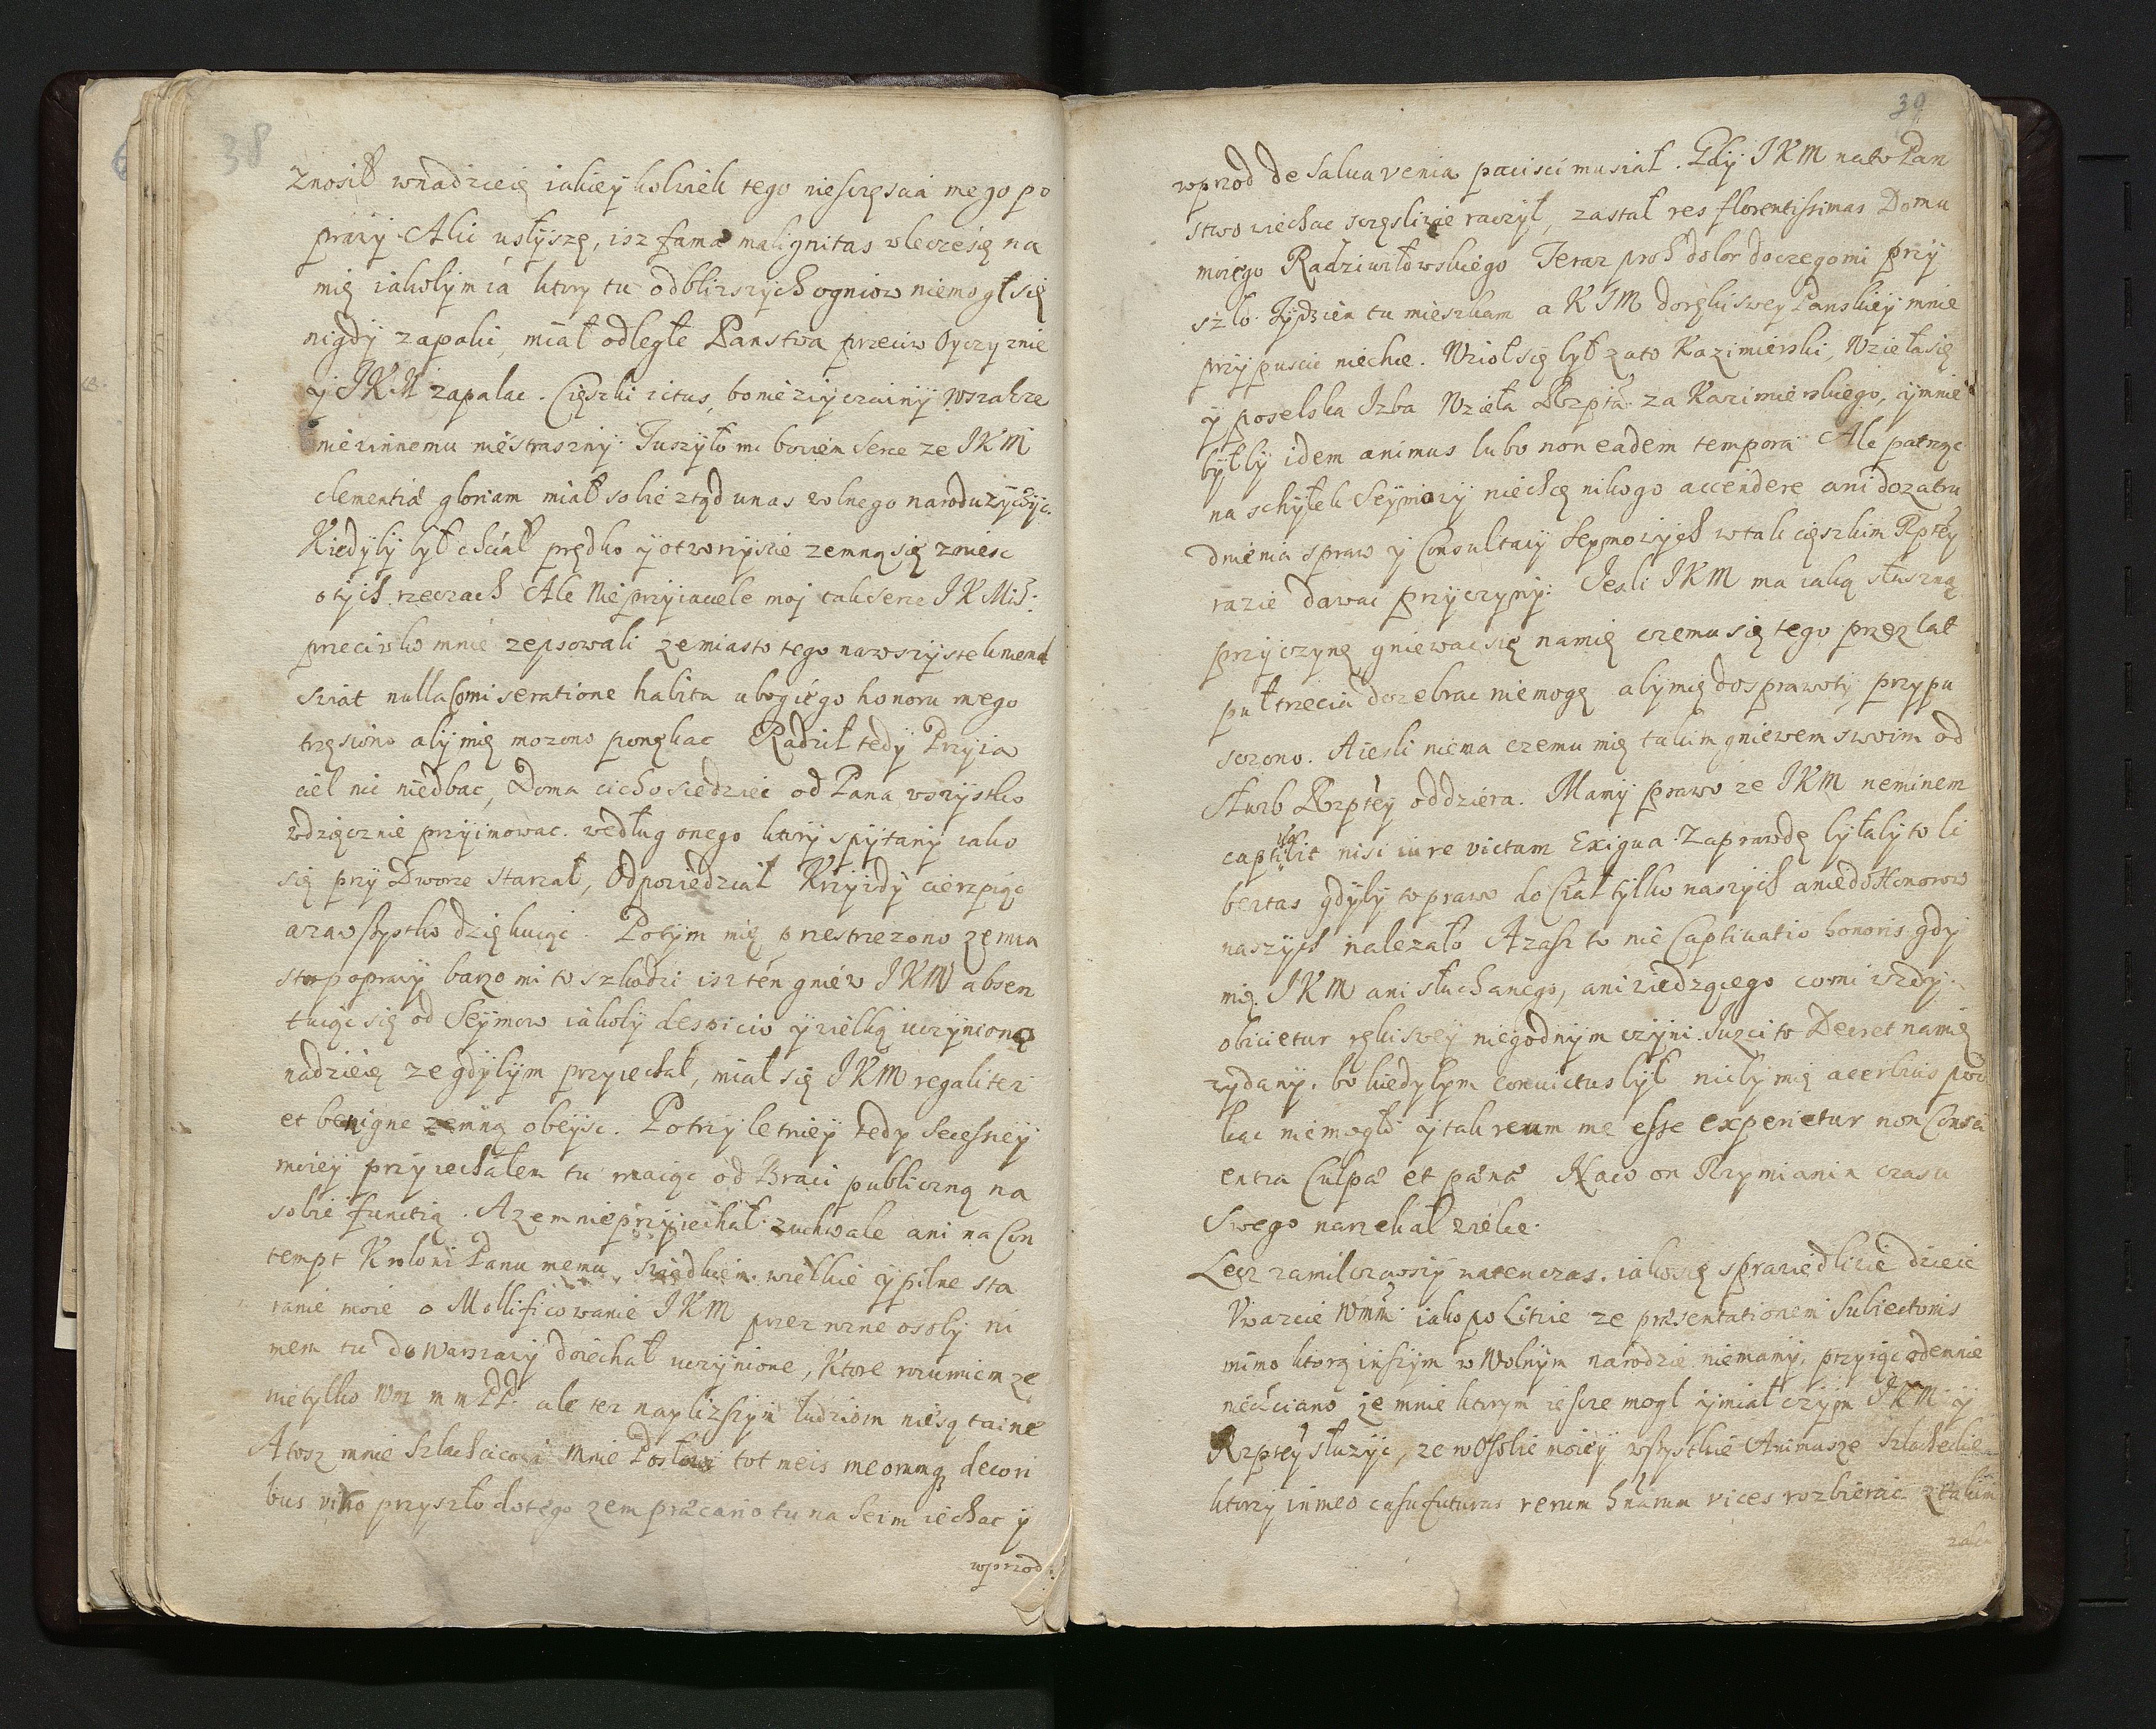 38
znosił wnadzieię iakieykolwiek tego niesczęscia mego po
prawy Alic usłyszę, isz fama malignitas wleczesię na
mię iakobym ia ktory tu odblizszych ogniow niemogł się
nigdy zapalic, miał odległe Panstwa przeciw Oyczyznie
y JKM zapalac. Cięszki ictus, bo niezwyczainy Wszakze
niewinnemu niestraszny. Tuszyło mi bowiem serce ze JKM
clementia gloriam miał sobie ztąd unas wolnego narodu zyczyc.
Kiedyby był chciał prędko y otworzyscie zemną się zniesc
o tych rzeczach Ale Nieprzyiaciele moi tak serce JKMsci:
przeciwko mnie zepsowali ze miasto tego nawszystek niemal
swiat nulla Comiseratione habita ubogiego honoru mego
trzęsiono aby mię mozono ponękac Radził tedy Przyia
ciel nic niedbac, Doma cicho siedziec od Pana wszystko
wdzięcznie przyimowac. według onego ktory spytany iako
się przy Dworze starzał, Odpowiedział Krzywdy cierpiąc
azawszystko dziękuiąc. Potym mię przestrzezono ze mia
sto poprawy barzo mi to szkodzi isz ten gniew JKM absen
tuiąc się od Seymow iakoby despicio y wielką uczynioną
nadzieię ze gdybym przyiechał, miał się JKM regaliter
et benigne zemną obeysc. Potrzyletniey tedy Secessiey
moiey przyiechałem tu maiąc od Braci publiczną na
sobie functią. Azem nieprzyiechał zuchwale ani na Con
tempt Krolowi Panu memu, swiadkiem wielkie y pilne sta
ranie moie o Mollificowanie JKM przez rozne osoby ni
zem tu do Warszawy doiechał uczynione, Ktore rozumiem ze
nietylko Wm m m PP. ale tez naybliszym ludziom niesą taine
Atosz mnie Szlachcicowi Mnie Posłowi tot meis meorumq decori
bus przyszło dotego zem precario tu na Seim iechac y
wprzod:
39
wprzod de salua venia pacisci musiał. Gdy JKM nato Pan
stwo wiechac sczęsliwie raczył, zastał res florentissimas Domu
moiego Radziwiłowskiego Teraz proh dolor doczegomi przy
szło. Tydzien tu mieszkam a KJM doręki swey Panskiey mnie
przypuscic niechce. Wzioł się był zato Kazimierski, Wzieła się
y poselska Izba Wzieła Rzpta za Kazimierskiego, y mnie
byłby idem animus lubo non eadem tempora Ale patrząc
na schyłek Seymowy niechcę nikogo accendere ani dozatru
dnienia spraw y Consultacy Seymowych wtak cięszkim Rptey
razie dawac przyczyny: Jesli JKM ma iaką słuszną
przyczynę gniewac się namię czemu się tego przez lat
pułtrzecia doczebrac niemogę aby mię dosprawoty przypu
sczono. Aiesli niema czemu mię takim gniewem swoim od
słuzb Rzptey oddziera. Mamy prawo ze JKM neminem
captiuabit nisi iure victum Exigua Zaprawdę byłaby to li
bertas gdyby to prawo do Ciał tylko naszych a niedo Honorow
naszych nalezało Azasz to nie Captiuatio honoris gdy
mię JKM ani słuchanego, ani wiedzącego comi wzdy
obicietur ręki swey niegodnym czyni. Juzci to Decret namię
wydany. bo kiedybym conuictus był nicby mię acerbius potka
kac niemogło y tak reum me esse experietur non Consci
entia Culpa et pœna Naco on Rzymianin czasu
Swego narzekał wielce.
Lecz zamilczawszy natenczas. iakosię sprawiedliwie dzieie
Vwazcie Wmm iako po Litwie ze præsentationem Subiectonis
mimo ktorą inszym w Wolnym narodzie niemamy, przyiąc odemnie
niechciano zemnie ktorym iescze mogł y miał czym JKM y
Rzptey słuzyc, ze wOsobie moiey wszystkie Animusze Szlachecie
ktorzy inmeo casu futuras rerum suarum vices rozbierac ztakim